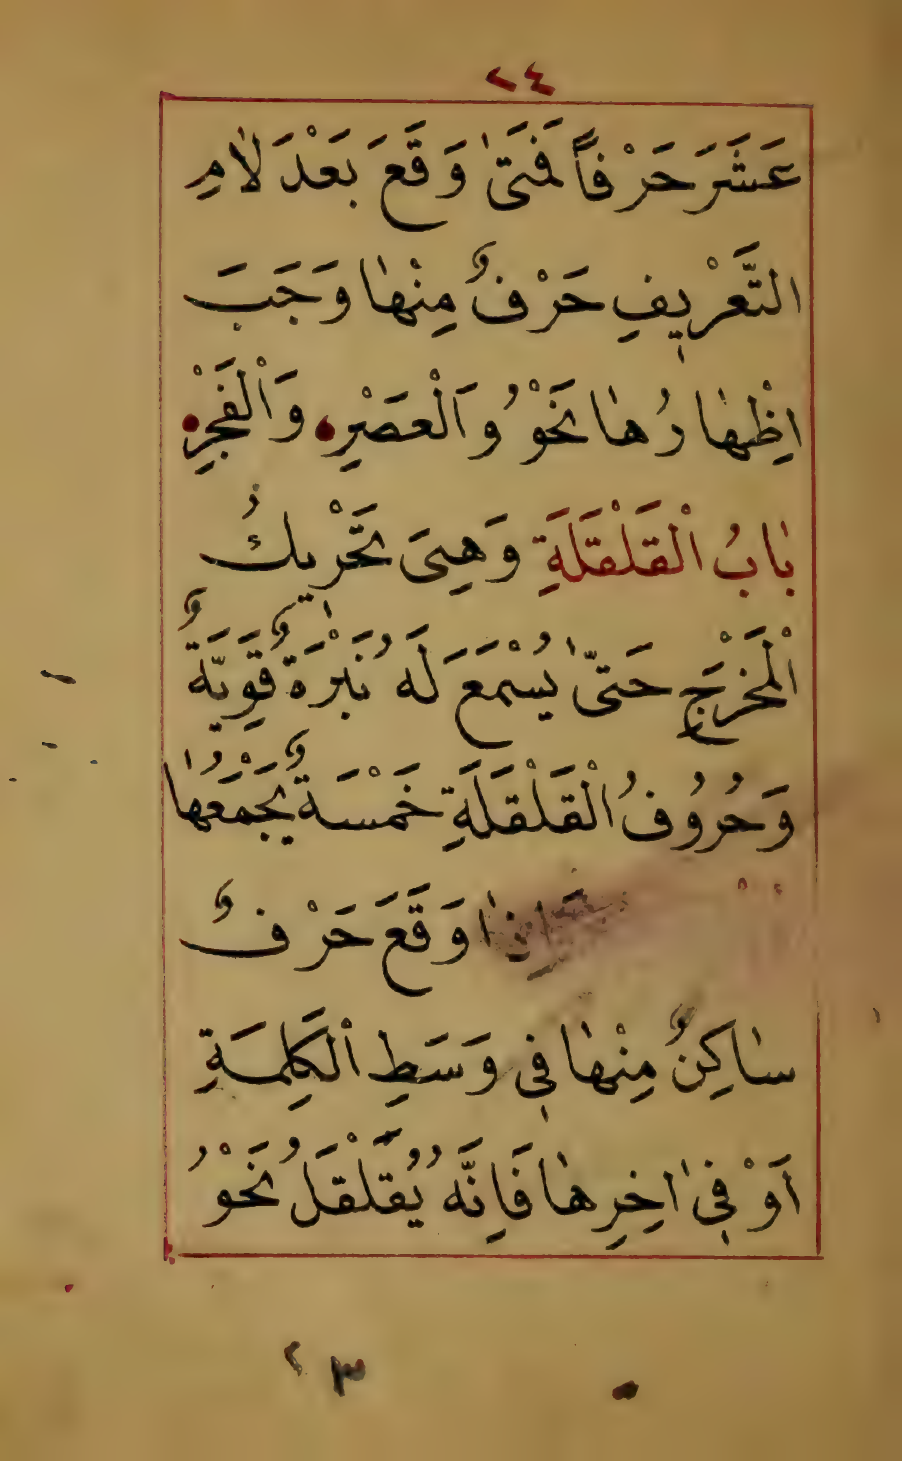 ٢٤
عَشَرَ حَرْفاً فَمَتىٰ وَقَعَ بَعْدَ لاٰمِ
التَّعْرِيفِ حَرْفٌ مِنْهاٰ وَجَبَ
اِظْهاٰرُهاٰ نَحْوُ وَالْعَصْرِ وَالْفَجْرِ
بٰابُ الْقَلْقَلَةِ وَهِىَ تَحْرِيكُ
الْمَخْرَجِ حَتّىٰ يُسْمَعَ لَهُ نَبْرَةٌ قَوِيَّةٌ
وَحُرُوفُ الْقَلْقَلَةِ خَمْسَةٌ يَجْمَعُهاٰ
فَاِذٰا وَقَعَ حَرْفٌ
سٰاكِنٌ مِنْهاٰ فِي وَسَطِ الْكَلِمَةِ
اَوْ فِىٰ اٰخِرِهاٰ فَاِنَّهُ يُقَلْقَلُ نَحْوُ
٢٣